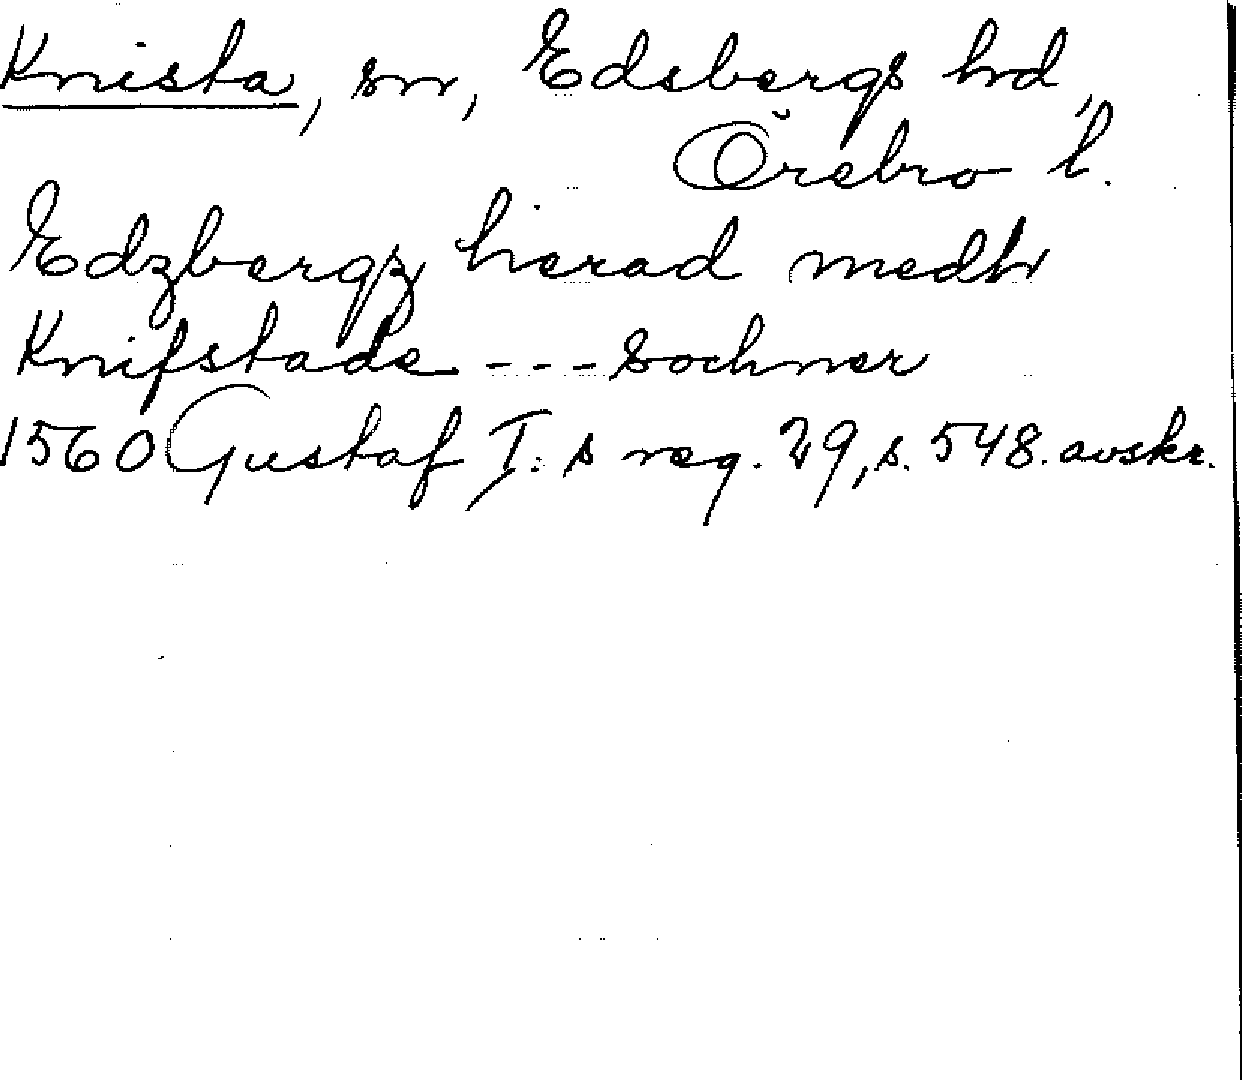 Knista, sn, Edsbergs hd,
Örebro l.
Edzbergz hierad medh
Knifstade --- sochner
1560 Gustaf I:s reg. 29, s. 548. avskr.